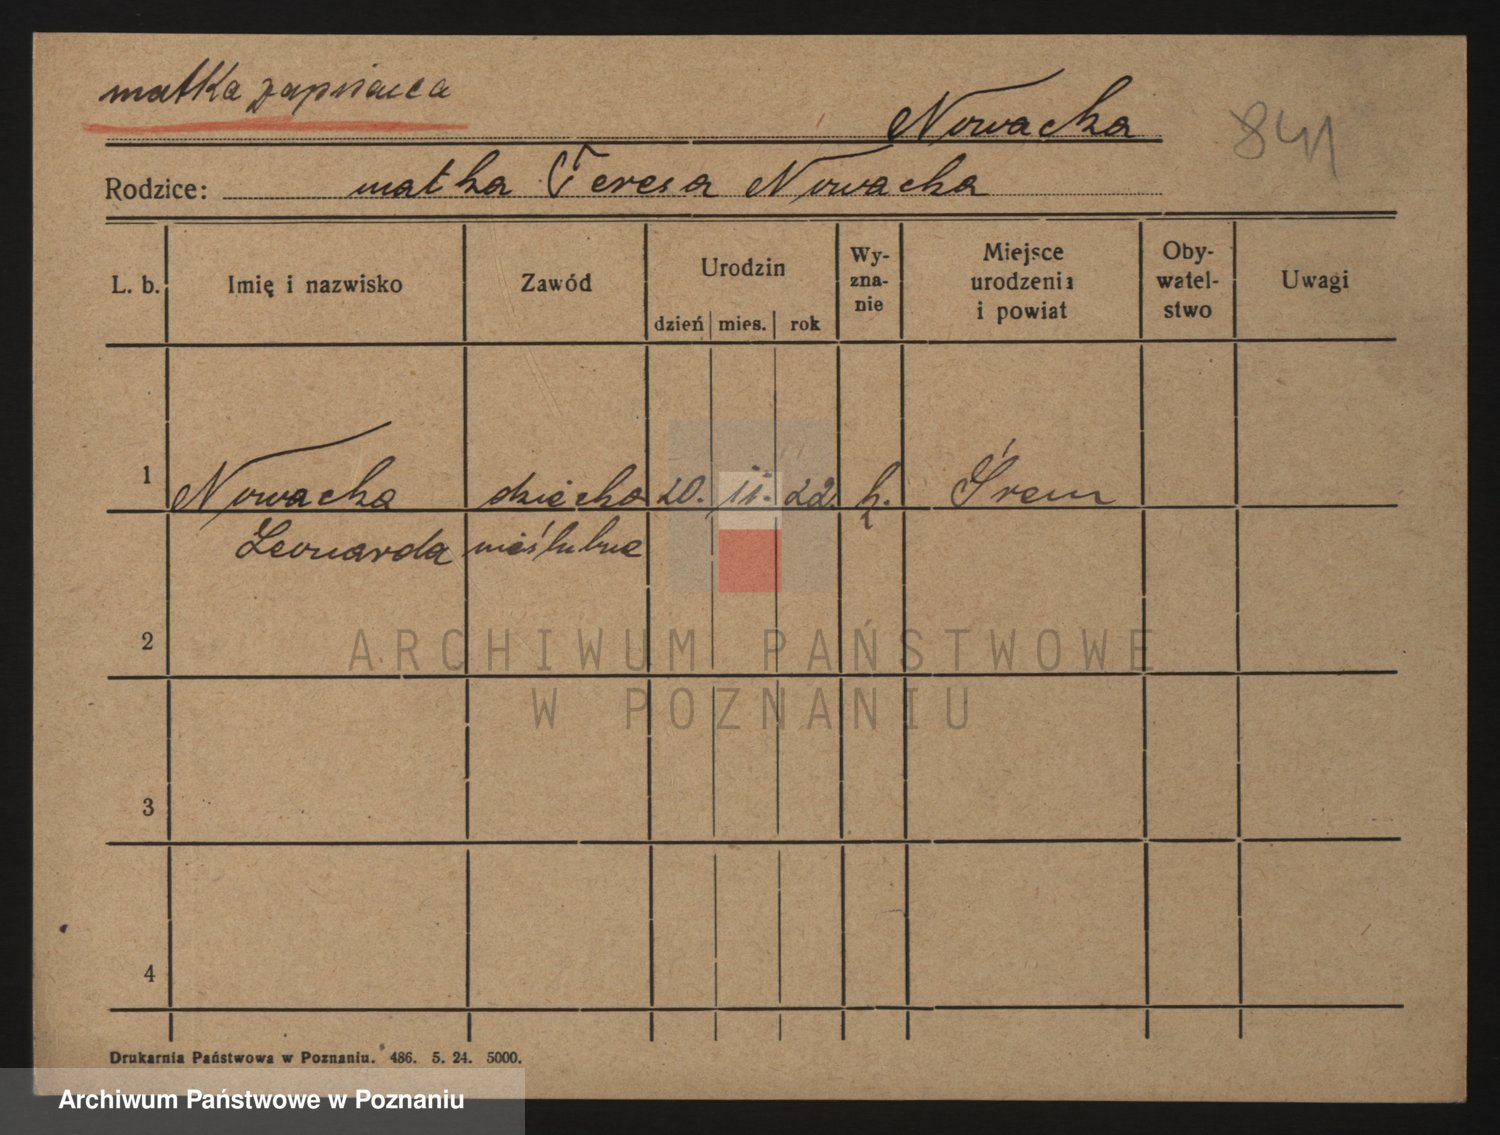 matka zapisana
Nowacka
841
Rodzice: matka Teresa Nowacka
L. b.
Imię i nazwisko
Zawód
Urodzin
dzień mies. rok
Wy-
zna-
nie
Miejsce
urodzenia
i powiat
Oby-
watel-
stwo
Uwagi
1 Nowacka dziecko 20. 11. 22. k. Śrem
Leonarda nieślubne
2
3
4
ARCHIWUM PAŃSTWOWE
W POZNANIU
Drukarnia Państwowa w Poznaniu. 486. 5. 24. 5000.
Archiwum Państwowe w Poznaniu